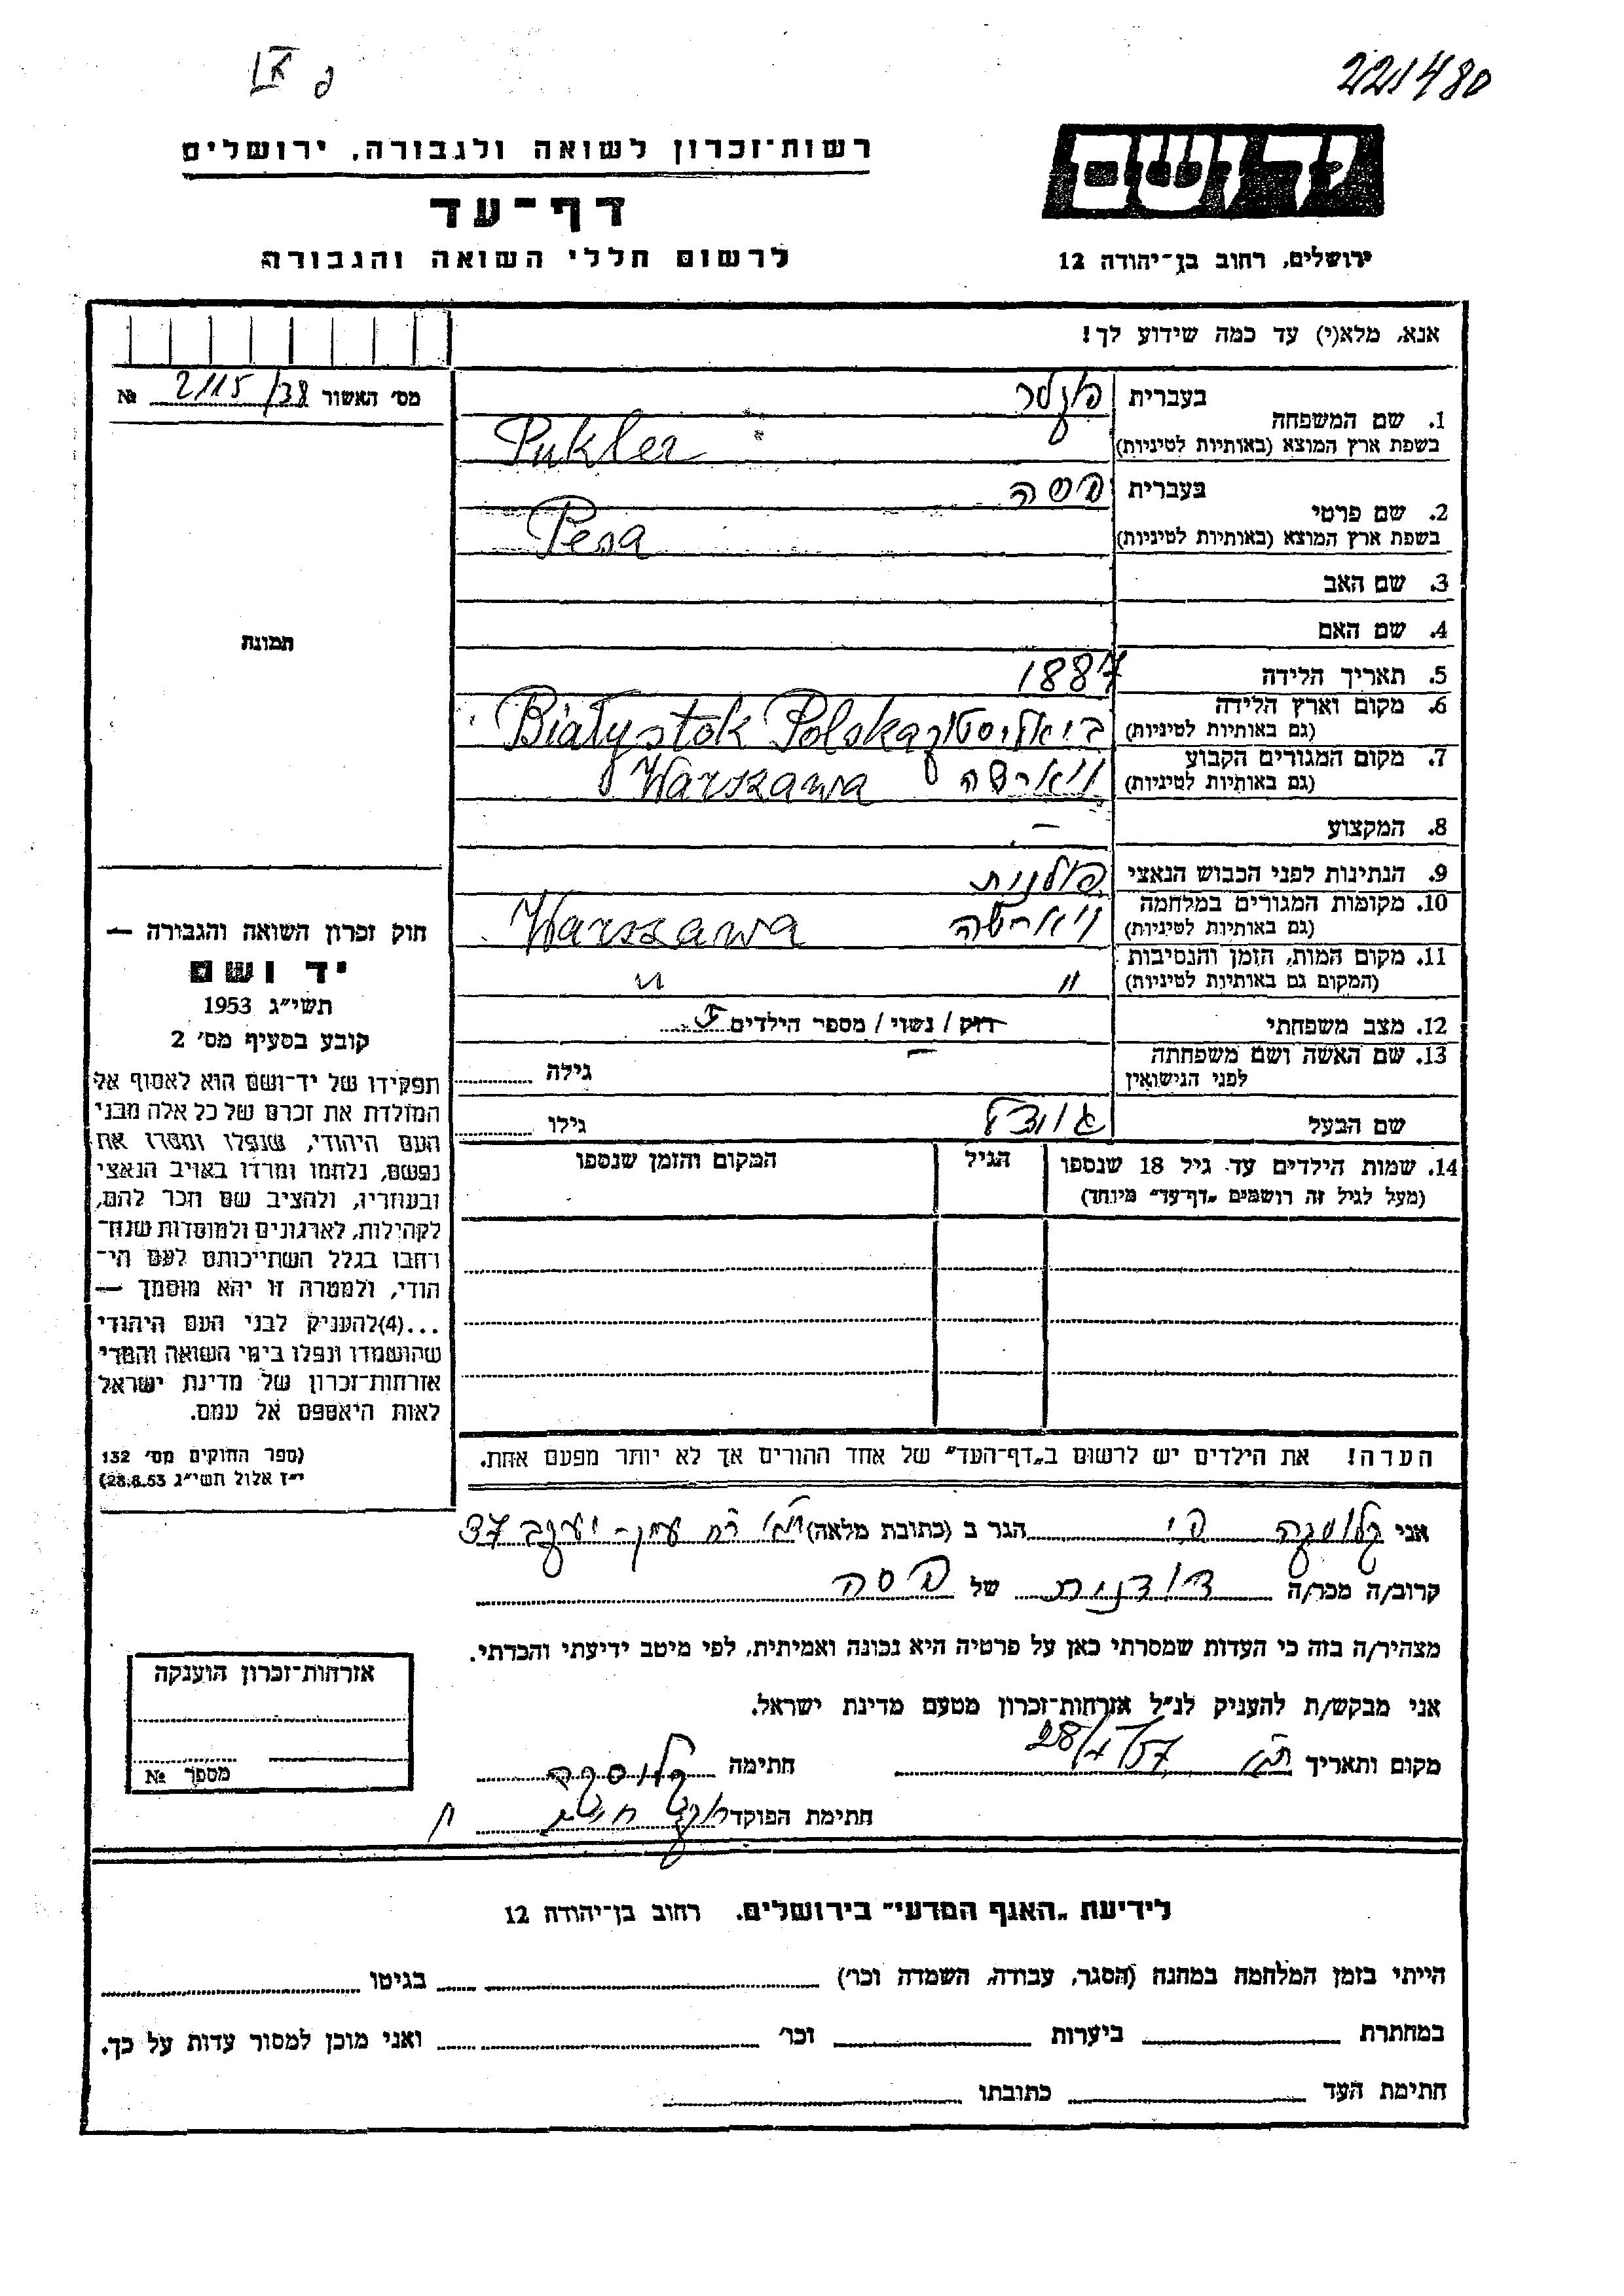 221480
רשות־זכרון לשואה ולגבורה, ירושלים
דף־עד
לרשום חללי השואה והגבורה
יד ושם
ירושלים, רחוב בן־יהודה 12
אנא, מלא(י) עד כמה שידוע לך!
מס׳ האשור 2115/38 №
תמונת
1. שם המשפחה
בעברית פוקלר
בשפת ארץ המוצא (באותיות לטיניות) Pukler
2. שם פרטי
בעברית פסה
בשפת ארץ המוצא (באותיות לטיניות) Pesa
3. שם האב
4. שם האם
5. תאריך הלידה 1887
6. מקום וארץ הלידה (גם באותיות לטיניות) ביאליסטוק Białystok Polska
7. מקום המגורים הקבוע (גם באותיות לטיניות) ויארשה Warszawa
8. המקצוע –
9. הנתינות לפני הכבוש הנאצי פולנית
10. מקומות המגורים במלחמה (גם באותיות לטיניות) ויארשה Warszawa
11. מקום המות, הזמן והנסיבות (המקום גם באותיות לטיניות) " "
12. מצב משפחתי רוק / נשוי / מספר הילדים
13. שם האשה ושם משפחתה לפני הנישואין – גילה
שם הבעל גילו
14. שמות הילדים עד גיל 18 שנספו
(מעל לגיל זה רושמים „דף־עד״ מיוחד)
הגיל
המקום והזמן שנספו
הערה! את הילדים יש לרשום ב„דף־העד״ של אחד ההורים אך לא יותר מפעם אחת.
חוק זכרון השואה והגבורה —
יד ושם
תשי״ג 1953
קובע בסעיף מס׳ 2
תפקידו של יד־ושם הוא לאסוף אל
המולדת את זכרם של כל אלה מבני
העם היהודי, שנפלו ומסרו את
נפשם, נלחמו ומרדו באויב הנאצי
ובעוזריו, ולהציב שם וזכר להם,
לקהילות, לארגונים ולמוסדות שנח־
רבו בגלל השתייכותם לעם הי־
הודי, ולמטרה זו יהא מוסמך —
...(4)להעניק לבני העם היהודי
שהושמדו ונפלו בימי השואה והמרי
אזרחות־זכרון של מדינת ישראל
לאות היאספם אל עמם.
(ספר החוקים מס׳ 132
י״ז אלול תשי״ג 28.8.53)
אני הגר ב (כתובת מלאה) ת״א רח עין־יעקב 37
קרוב/ה מכר/ה דודנות של פסה
מצהיר/ה בזה כי העדות שמסרתי כאן על פרטיה היא נכונה ואמיתית, לפי מיטב ידיעתי והכרתי.
אני מבקש/ת להעניק לנ״ל אזרחות־זכרון מטעם מדינת ישראל.
מקום ותאריך ת״א חתימה
חתימת הפוקד
אזרחות־זכרון הוענקה
מספר №
לידיעת „האגף המדעי״ בירושלים. רחוב בן־יהודה 12
הייתי בזמן המלחמה במחנה (הסגר, עבודה, השמדה וכו׳) בגיטו
במחתרת ביערות וכו׳ ואני מוכן למסור עדות על כך.
חתימת העד כתובתו